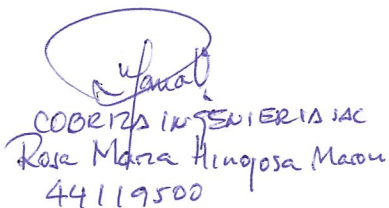 COBRIZA INGENIERIA SAC
Rosa Maria Hinojosa
44119500